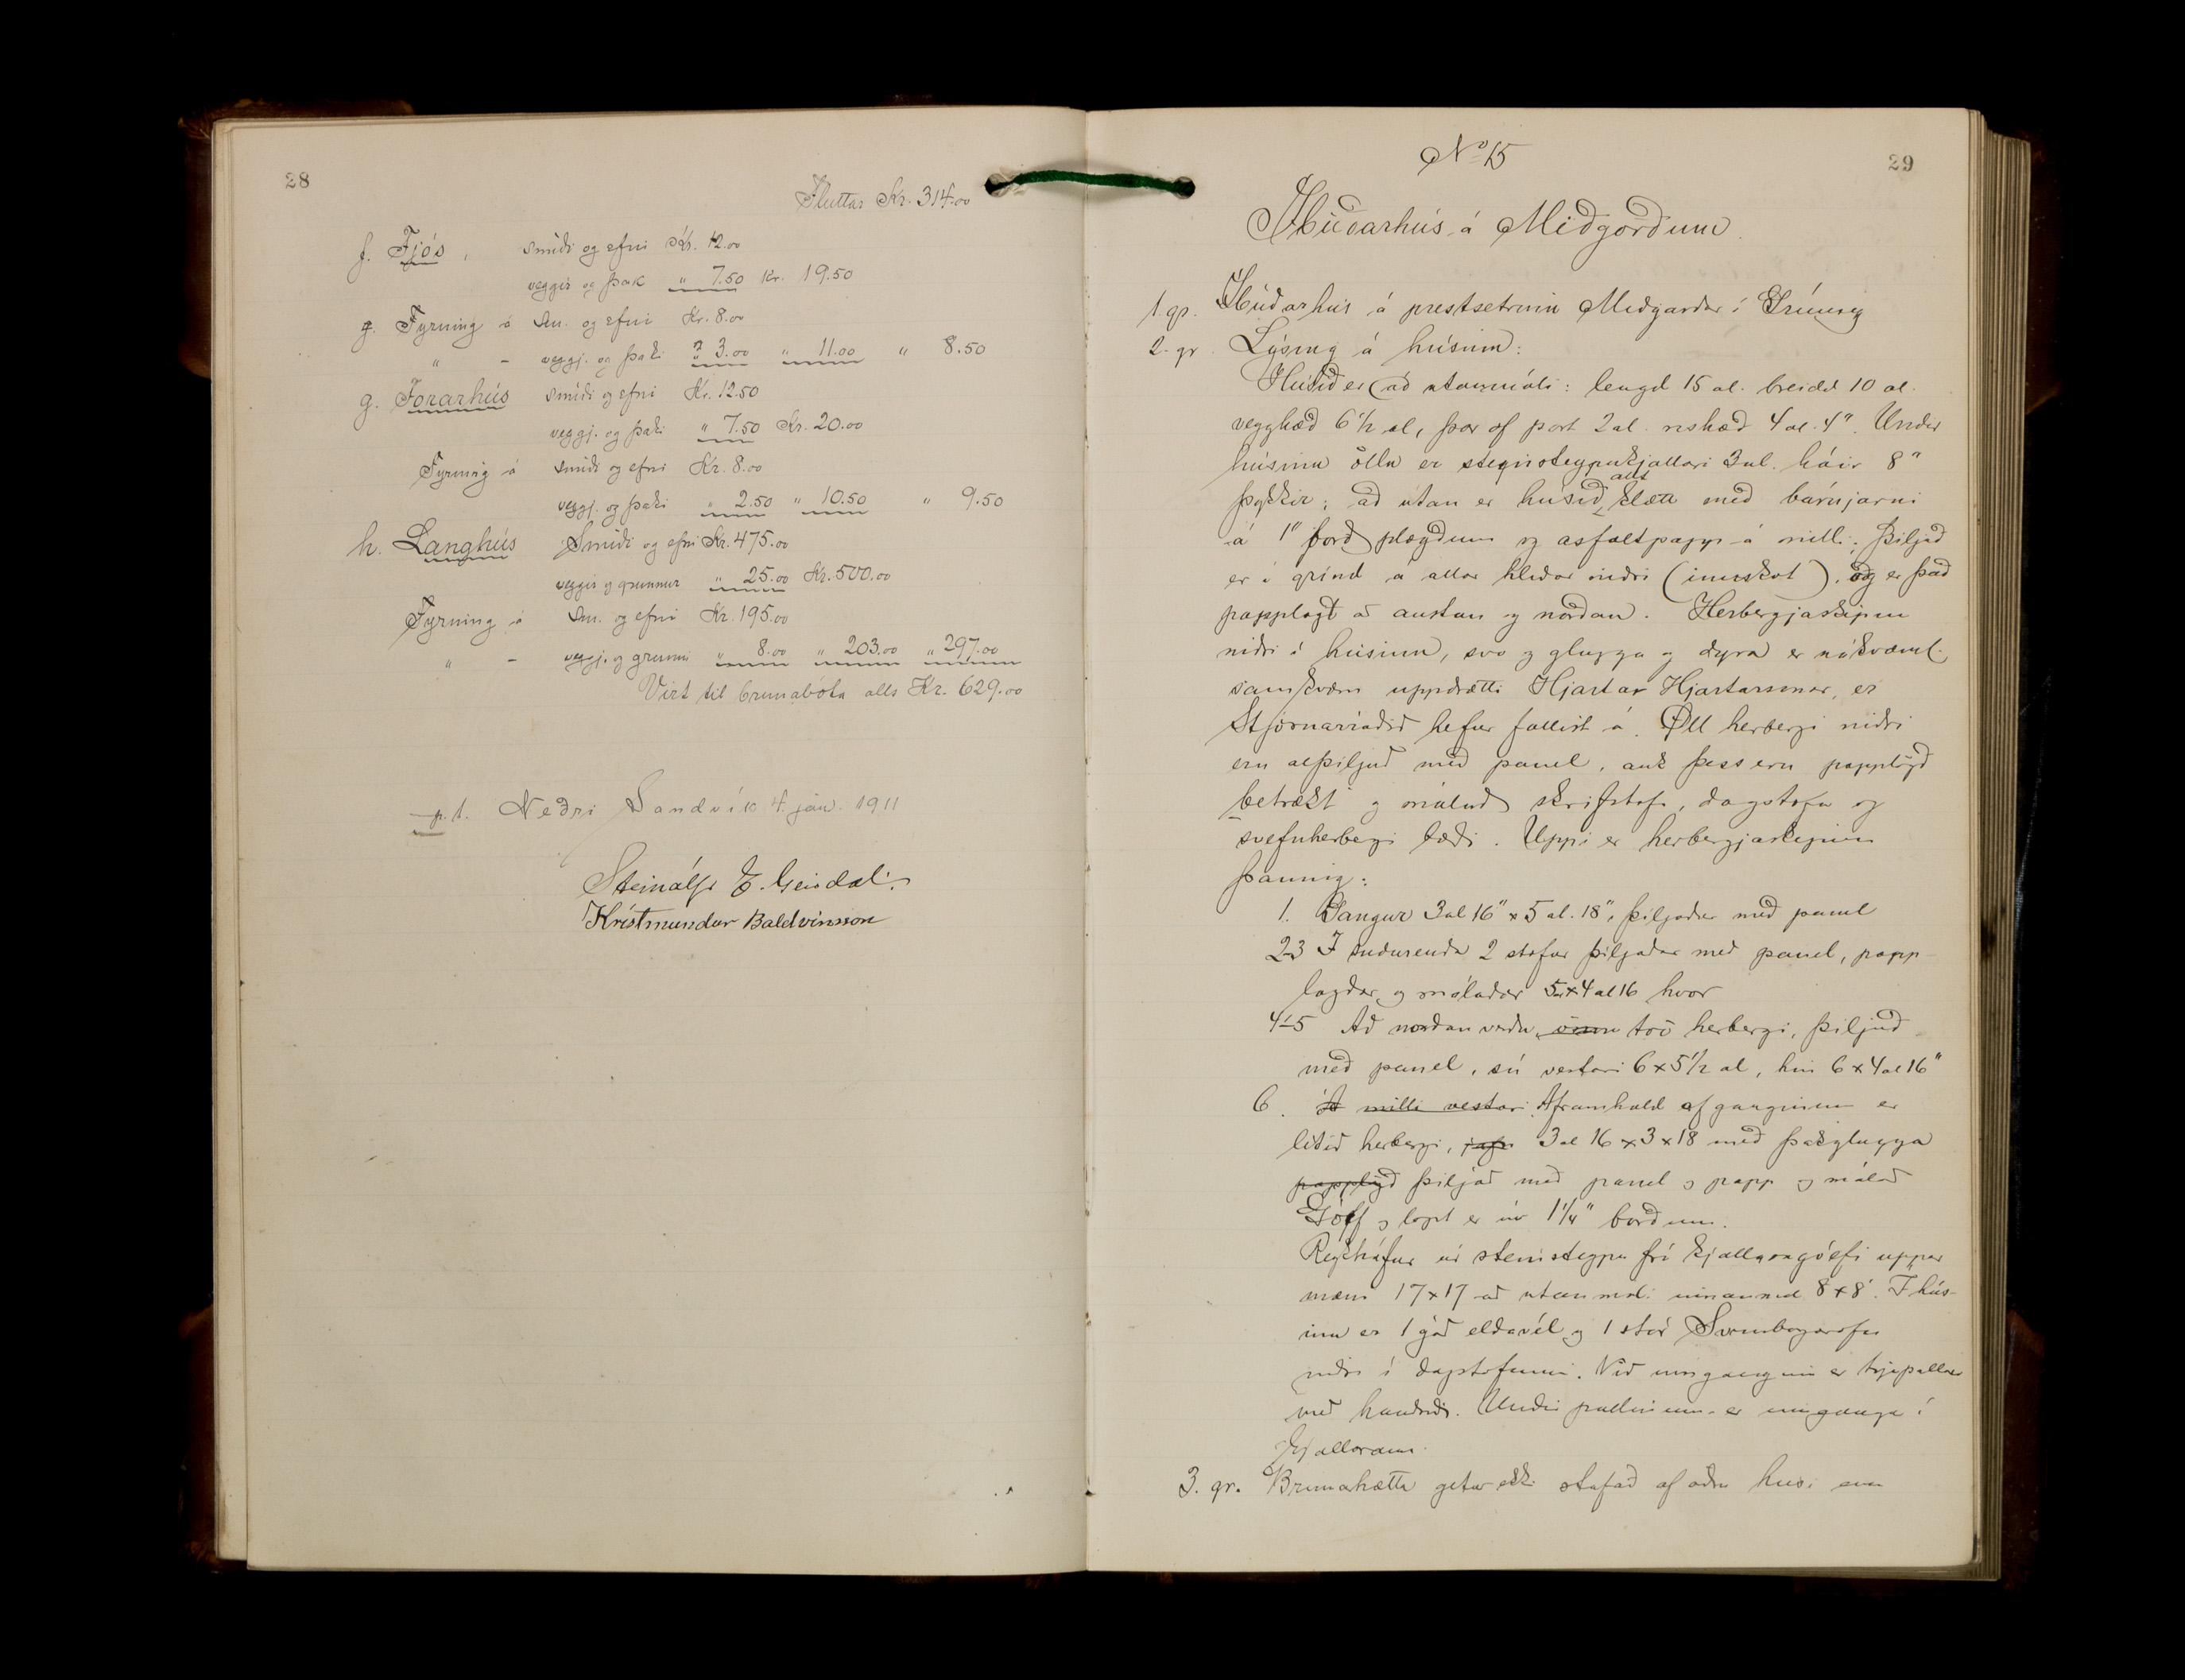 28
Fluttar Kr. 314.00
f. Fjós, smíði og efni Kr. 12.00
veggir og þak " 7.50 Kr. 19.50
g. Fyrning á sm. og efni Kr. 8.00
" - veggj. og þaki " 3.00 " 11.00 " 8.50
g. Forarhús smíði og efni Kr. 12.50
veggj. og þaki " 7.50 Kr. 20.00
Fyrning á smíði og efni Kr. 8.00
veggj. og þaki " 2.50 " 10.50 " 9.50
h. Langhús Smíði og efni Kr. 475.00
veggir og grunnur " 25.00 Kr. 500.00
Fyrning á sm. og efni Kr. 195.00
" - veggj. og grunni " 8.00 " 203.00 " 297.00
Virt til brunabóta alls Kr. 629.00
p.t. Neðri Sandvík 4. jan. 1911
Steinólfr E. Geirdal.
Kristmundur Baldvinsson
29
No 15
Íbúðarhús á Miðgörðum
1 gr. Íbúðarhús á prestsetrinu Miðgarðar í Grímsey
2. gr. Lýsing á húsinu:
Húsið er að utanmáli: lengd 15 al. breidd 10 al.
vegghæð 6 1/2 al, þar af port 2 al. rishæð 4 al. 4". Undir
húsinu öllu er steinsteypukjallari 3 al. háir 8"
þykkir; að utan er húsið allt klætt með bárujarni
á 1" borð plægðum og asfaltpapp á milli; Þiljað
er í grind á allar hliðar niðri (innskot), og er það
papplagt að austan og norðan. Herbergjaskipun
niðri í húsinu, svo og glugga og dyra er nákvæml.
samkvæm uppdrætti Hjartar Hjartarsonar, er
Stjórnarráðið hefur fallist á. Öll herbergi niðri
eru alþiljuð með panel, auk þess eru papplögð
betrekt og máluð skrifstofa, dagstofa og
svefnherbergi bæði. Uppi er herbergjaskipun
þannig:
1. Gangur 3 al 16" x 5 al. 18", þiljaður með panel
2-3 Í suðurenda 2 stofur þiljaðar með panel, papp-
lagðar og málaðar 5 x 4 al 16 hvor
4-5 Að norðan verðu tvö herbergi, þiljuð
með panel, sú vestari 6 x 5 1/2 al, hin 6 x 4 al 16"
6. At milli vestari Áframhald af ganginum er
lítið herbergi, 3 al 16 x 3 x 18 með þakglugga
papplögð þiljað með panel og papp og málað
Gólf og loft er úr 1 1/4" borðum.
Reykháfur úr steinsteypu frá kjallaragólfi uppúr
mæni 17 x 17 að utanmáli innanmál 8 x 8". Í hús-
inu er 1 góð eldavél og 1 stór ofn
niðri í dagstofunni. Við innganginn er trjepallur
með handriði. Undir pallinum er inngangur í
kjallarann.
3. gr. Brunahætta getur ekki stafað af öðru húsi en